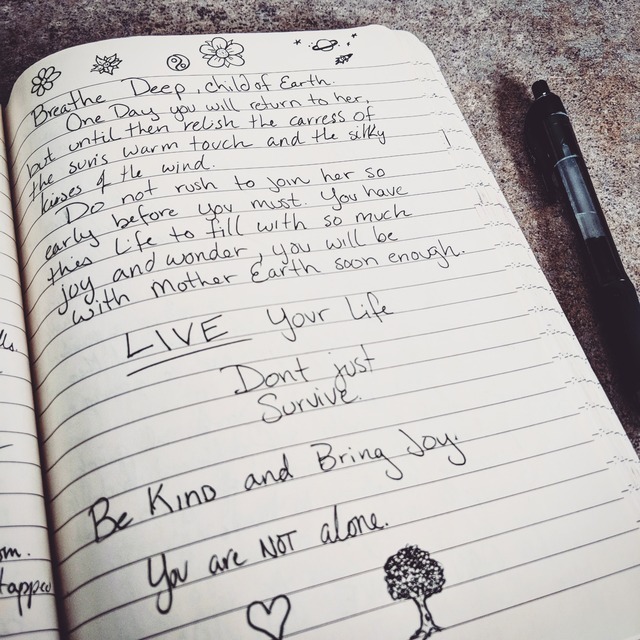 Breathe Deep, child of Earth.
One Day you will return to her,
but until then relish the carress of
the sun's warm touch and the silky
kisses of the wind.
Do not rush to join her so
early before you must. You have
this life to fill with so much
joy and wonder, you will be
with Mother Earth soon enough.
LIVE your life
Dont just
Survive.
Be KIND and Bring Joy.
You are NOT alone.